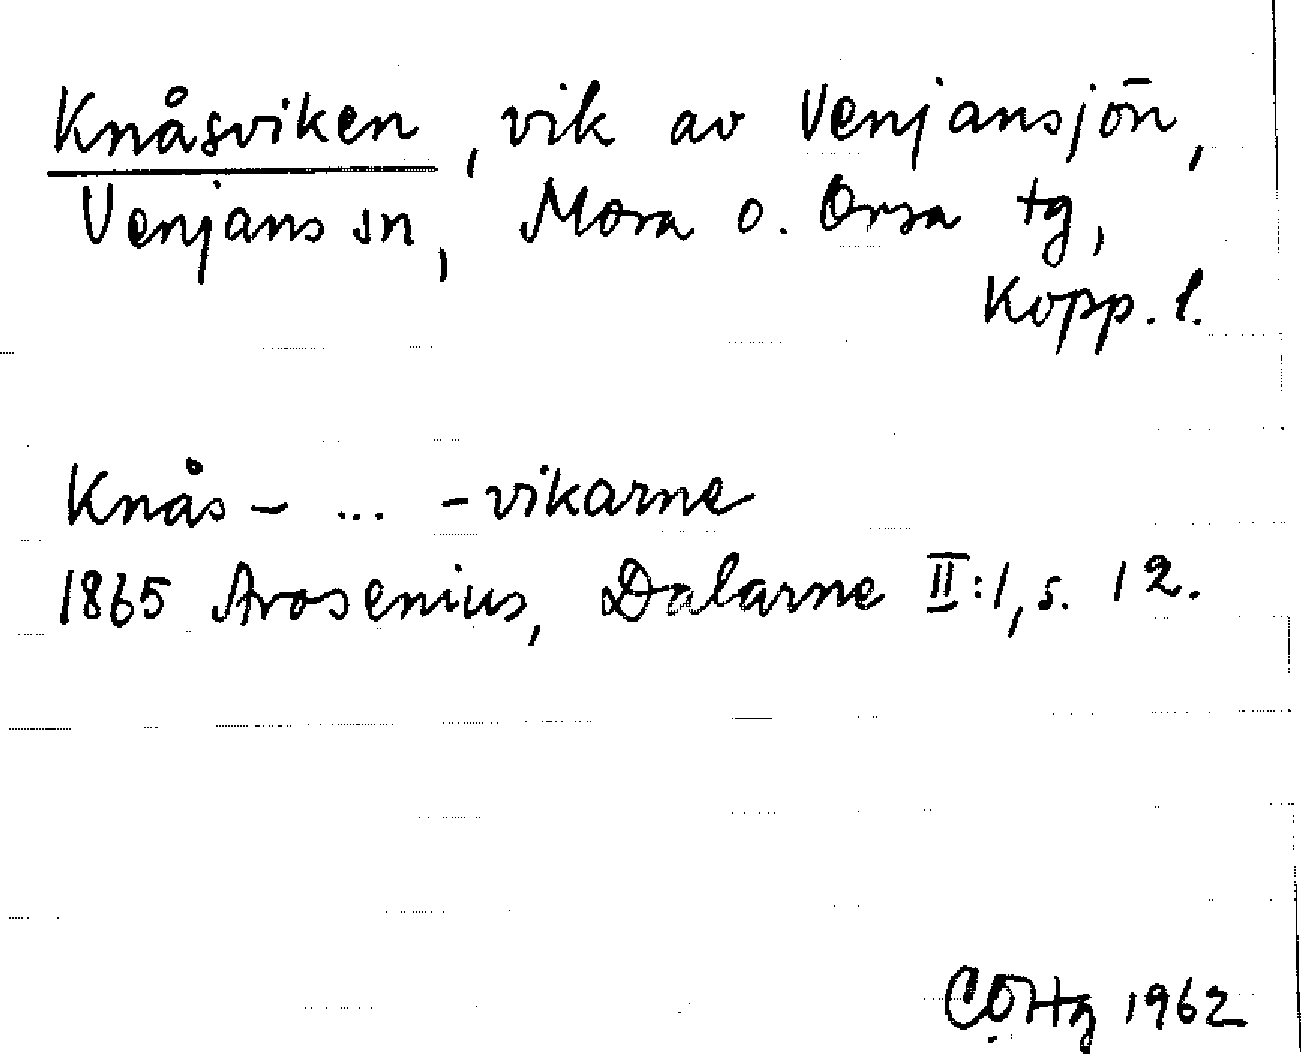 Knåsviken, vik av Venjansjön,
Venjans sn, Mora o. Orsa tg,
Kopp. l.
Knås- ... -vikarne
1865 Arosenius, Dalarne II:1, s. 12.
1962